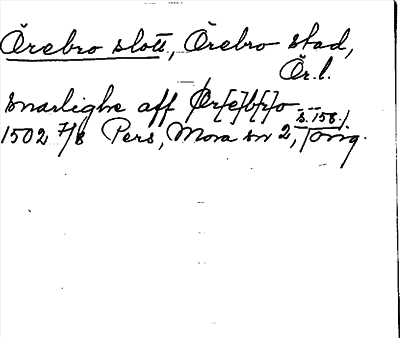 Örebro slott, Örebro stad,
Ör. l.
snarlighe aff Ør[e]b[r]o
s. 158.)
1502 7/8 Pers, Mora sn 2, Törig.